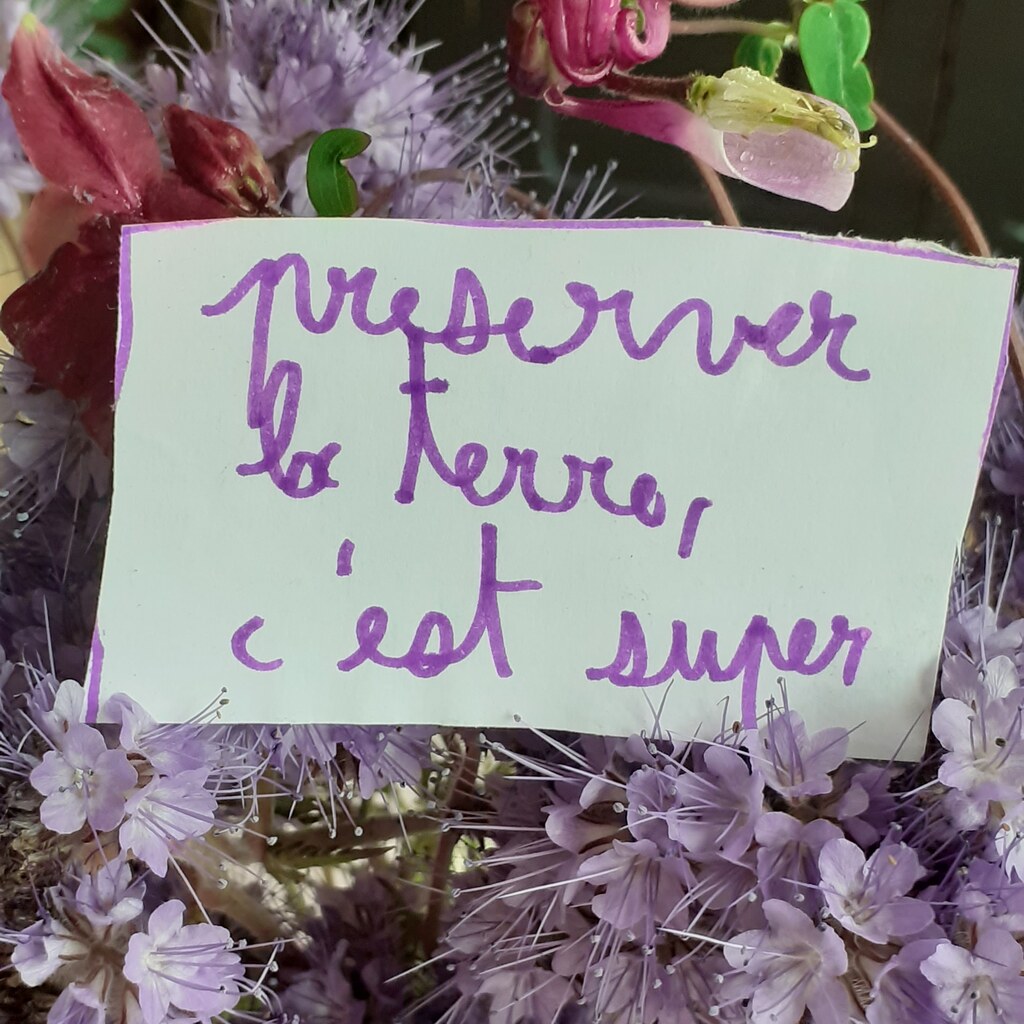 preserver
la terre,
c'est super